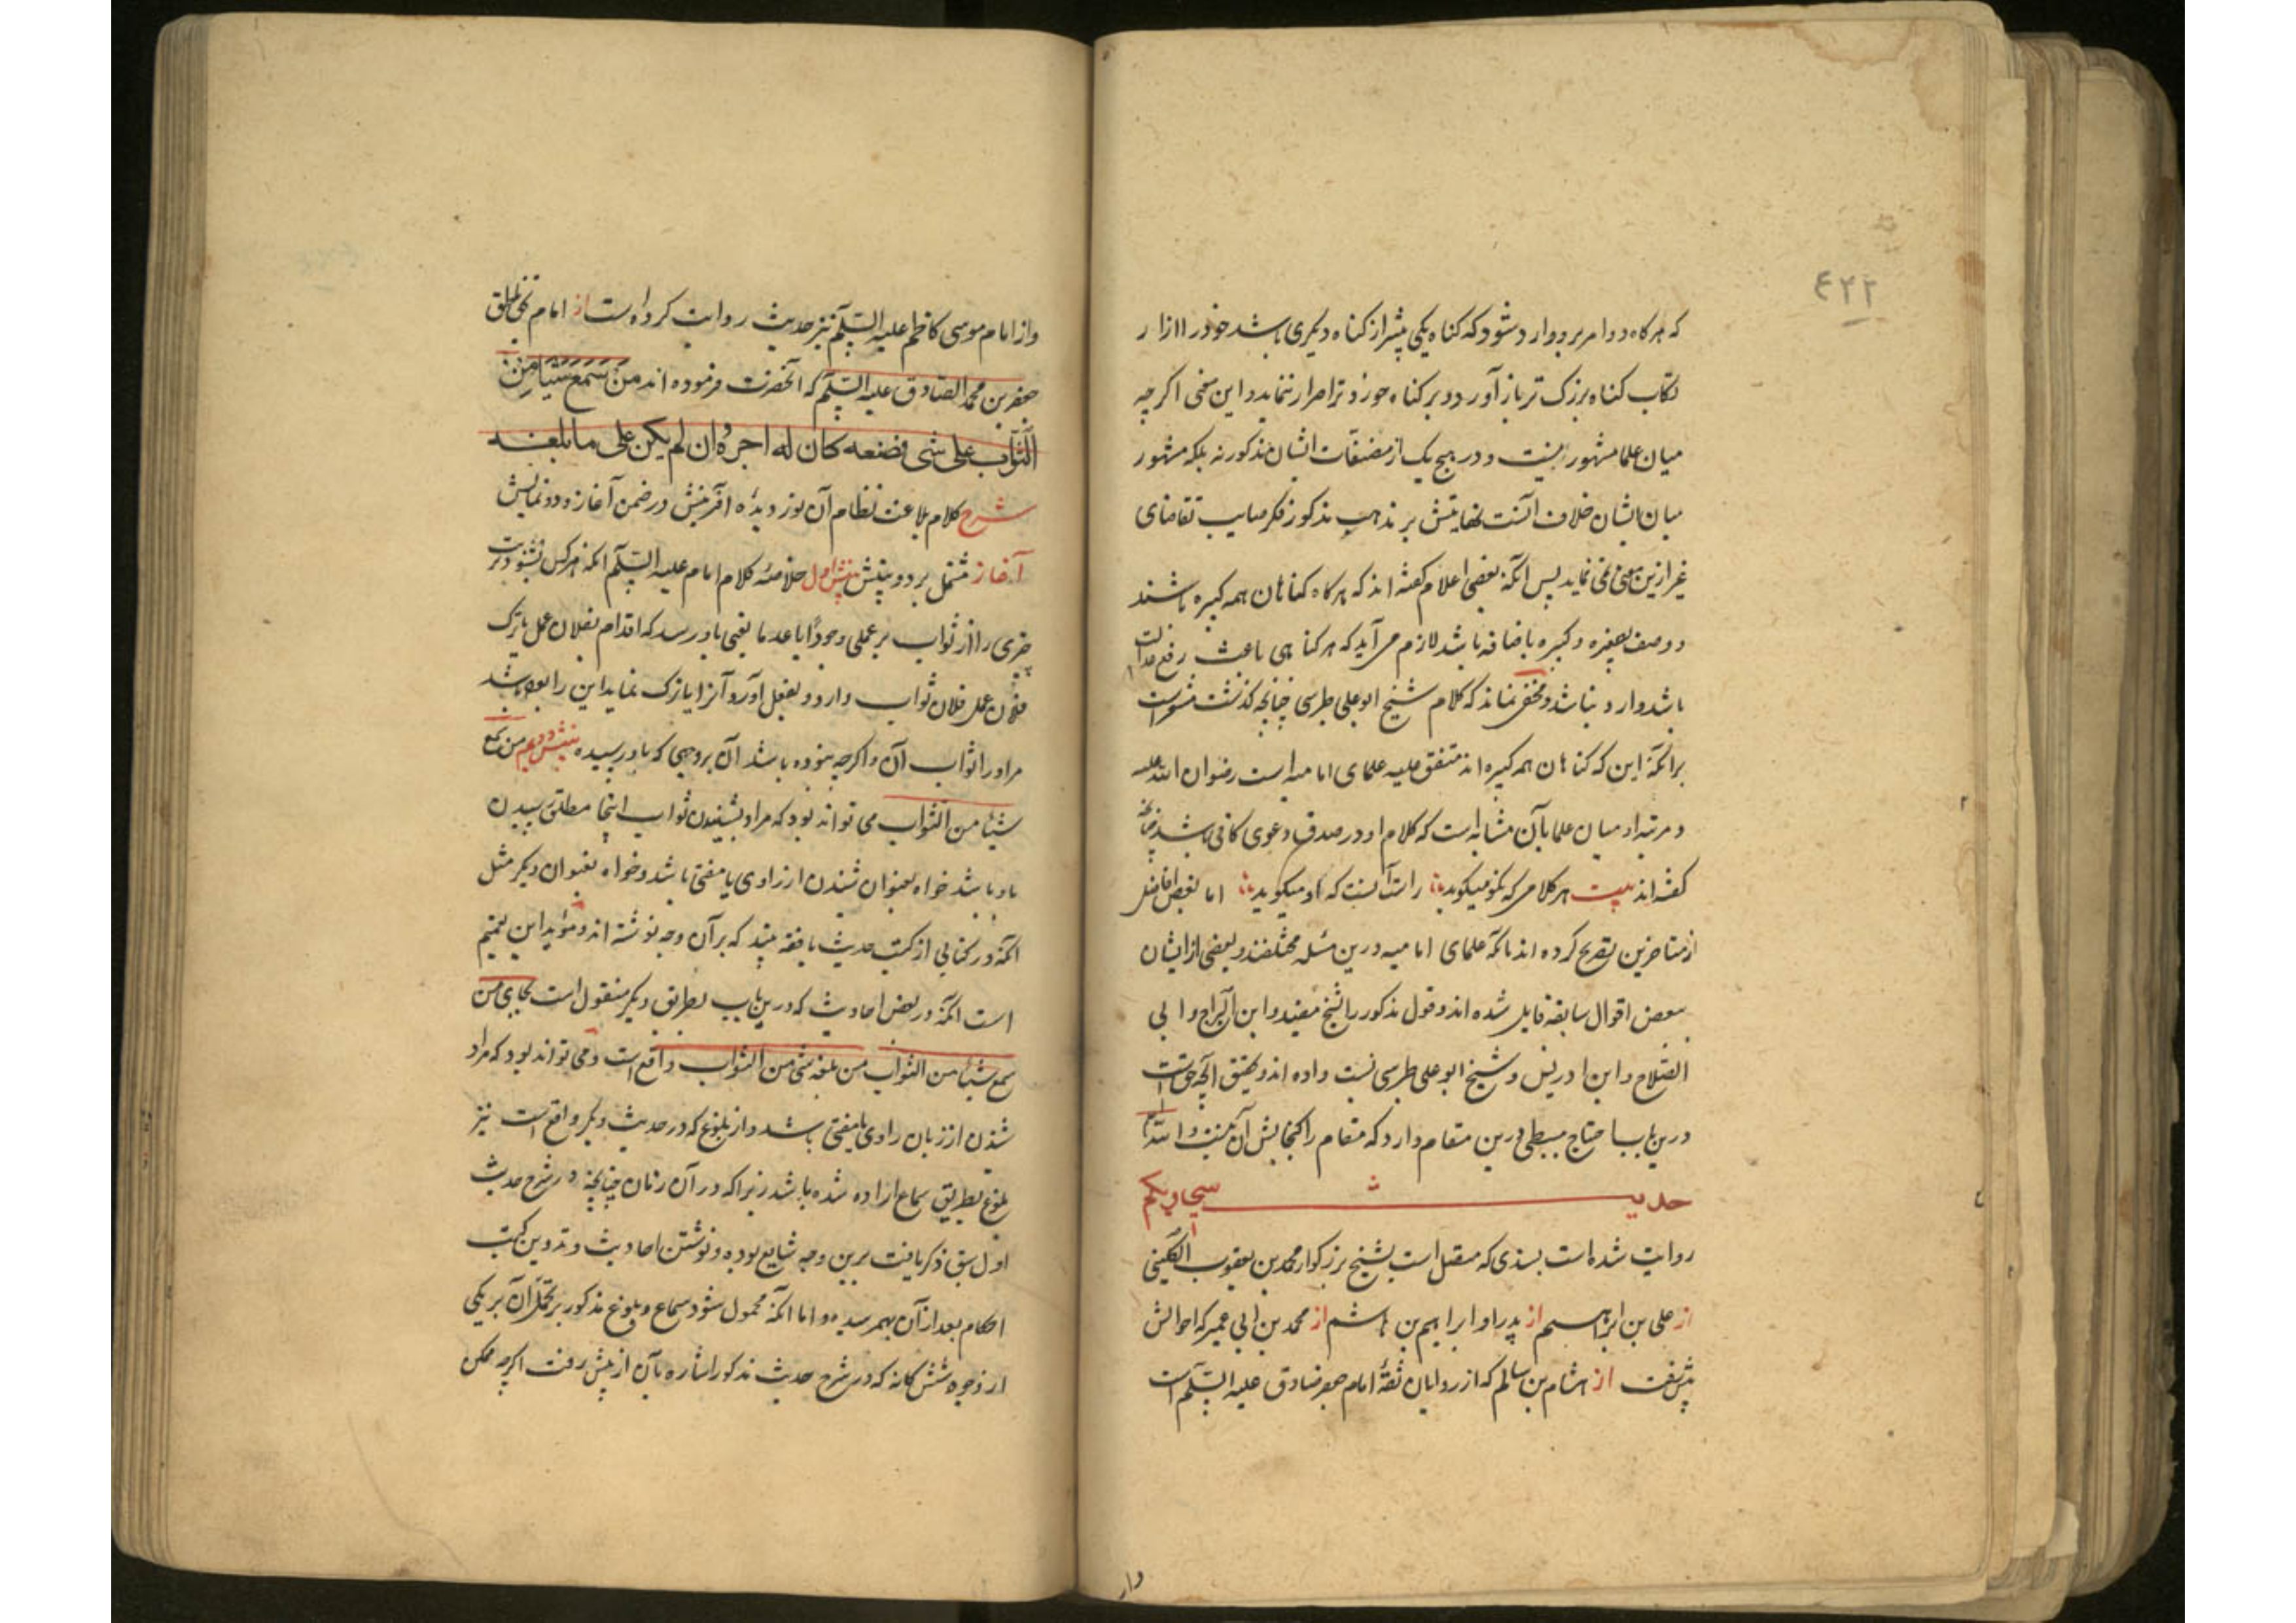 ۴۲۲
که هرگاه دو امر برو وارد شود که گناه یکی بیشتر از گناه دیگری باشد خود را از ار
تکاب گناه بزرگ تر باز آورد و بر گناه خوردتر اصرار ننماید و این سخن اگرچه
میان علما مشهور نیست و در هیچ یک از مصنفات ایشان مذکور نه بلکه مشهور
میان ایشان خلاف آنست نهایتش بر مذهب مذکور فکر صایب تقاضای
غیر ازین معنی نمی نماید پس آنکه بعضی اعلام گفته اند که هرگاه گناهان همه کبیره باشند
و وصف بصغیره و کبیره باضافه باشد لازم می آید که هر گناهی باعث رفع عدالت
باشد وارد نباشد و مخفی نماند که کلام شیخ ابوعلی طبرسی چنانچه گذشت مشعر است
برآنکه این که گناهان همه کبیره اند متفق علیه علمای امامیه است رضوان الله علیه
و مرتبه او میان علما بآن مثابه است که کلام او در صدق دعوی کافی باشد چنانچه
گفته اند بیت هر کلامی که نکو میگوید راست آنست که او میگوید اما بعض افاضل
از متاخرین تصریح کرده اند بآنکه علمای امامیه درین مسئله مختلفند و بعضی از ایشان
ببعض اقوال سابقه قایل شده اند و قول مذکور را شیخ مفید و ابن البراج و ابی
الصلاح و ابن ادریس و شیخ ابو علی طبرسی نسبت داده اند و تحقیق آنچه حق است
درین باب احتیاج ببسطی درین مقام دارد که مقام را گنجایش آن نیست والله
حدیث سی و یکم
روایت شده است بسندی که متصل است بشیخ بزرگوار محمد بن یعقوب الکلینی
از علی بن ابراهیم از پدر او ابراهیم بن هاشم از محمد بن ابی عمیر که احوالش
از هشام بن سالم که از راویان ثقهٔ امام جعفر صادق علیه السلام است
واز
واز امام موسی کاظم علیه السلام نیز حدیث روایت کرده است از امام بحق ناطق
جعفر بن محمد الصادق علیه السلام که آنحضرت فرموده اند من سمع شیئا من
الثواب علی شی فصنعه کان له اجره وان لم یکن علی ما بلغه
شرح کلام بلاغت نظام آن نور دیدهٔ آفرینش در ضمن آغاز و دو نمایش
آغاز مشتمل بر دو بینش بینش اول خلاصهٔ کلام امام علیه السلام آنکه هرکس بشنود ترتب
چیزی را از ثواب بر عملی وجودًا یا عدما یعنی باو رسد که اقدام بفلان عمل یا ترک
فلان عمل فلان ثواب دارد و بفعل آورد آنرا یا ترک نماید این را بوده باشد
مر او را ثواب آن و اگرچه نبوده باشد آن بروجهی که باو رسیده بینش دویم من سمع
شیئا من الثواب می تواند بود که مراد بشنیدن ثواب اینجا مطلق رسیدن
باو باشد خواه بعنوان شنیدن از راوی یا مفتی باشد و خواه بعنوان دیگر مثل
آنکه در کتابی از کتب حدیث یا فقه بیند که برآن وجه نوشته اند و مؤید این تعمیم
است آنکه در بعض احادیث که درین باب بطریق دیگر منقول است بجای من
سمع شیئا من الثواب من بلغه شی من الثواب واقع است و می تواند بود که مراد
شنیدن از زبان راوی یا مفتی باشد و از بلوغ که در حدیث دیگر واقع است نیز
بلوغ بطریق سماع اراده شده باشد زیرا که در آن زمان چنانچه در شرح حدیث
اول سبق ذکر یافت برین وجه شایع بوده و نوشتن احادیث و تدوین کتب
احکام بعد از آن بهم رسیده و اما آنکه محمول شود سماع و بلوغ مذکور بر تحمل آن بر یکی
از وجوه شش گانه که در شرح حدیث مذکور اشاره بآن از پیش رفت اگرچه ممکن